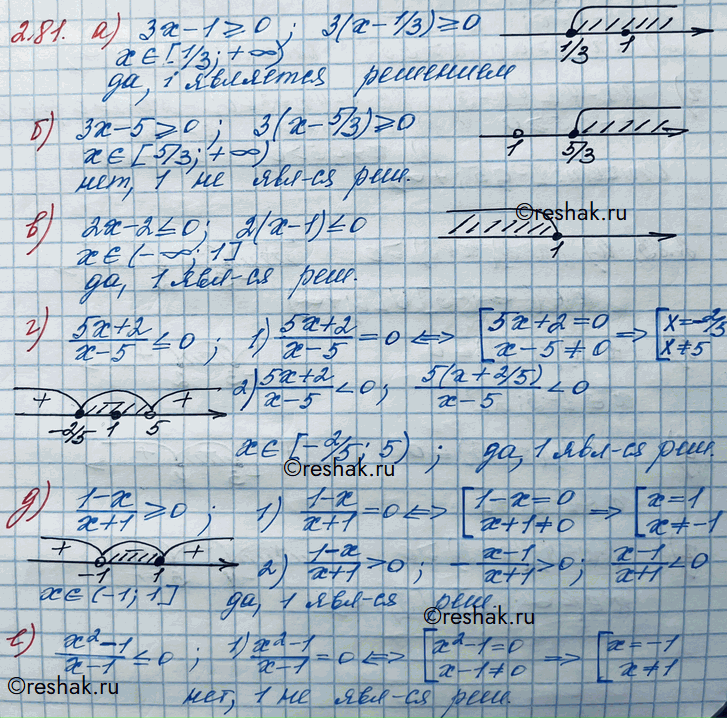 2.81. а) 3x-1≥0; 3(x-1/3)≥0
1/3 1
x∈[1/3; +∞)
да, 1 является решением
б) 3x-5≥0; 3(x-5/3)≥0
1 5/3
x∈[5/3; +∞)
нет, 1 не явл-ся реш.
©reshak.ru
в) 2x-2≤0; 2(x-1)≤0
1
x∈(-∞; 1]
да, 1 явл-ся реш.
г) (5x+2)/(x-5)≤0; 1) (5x+2)/(x-5)=0 ⇔ [5x+2=0 x-5≠0 ⇒ [x=-2/5 x≠5
2) (5x+2)/(x-5)<0; 5(x+2/5)/(x-5)<0
+ + -2/5 1 5
x∈[-2/5; 5); да, 1 явл-ся реш.
©reshak.ru
д) (1-x)/(x+1)≥0; 1) (1-x)/(x+1)=0 ⇔ [1-x=0 x+1≠0 ⇒ [x=1 x≠-1
+ + -1 1
2) (1-x)/(x+1)>0; -(x-1)/(x+1)>0; (x-1)/(x+1)<0
x∈(-1; 1] да, 1 явл-ся реш.
©reshak.ru
е) (x²-1)/(x-1)≤0; 1) (x²-1)/(x-1)=0 ⇔ [x²-1=0 x-1≠0 ⇒ [x=-1 x≠1
©reshak.ru
нет, 1 не явл-ся реш.